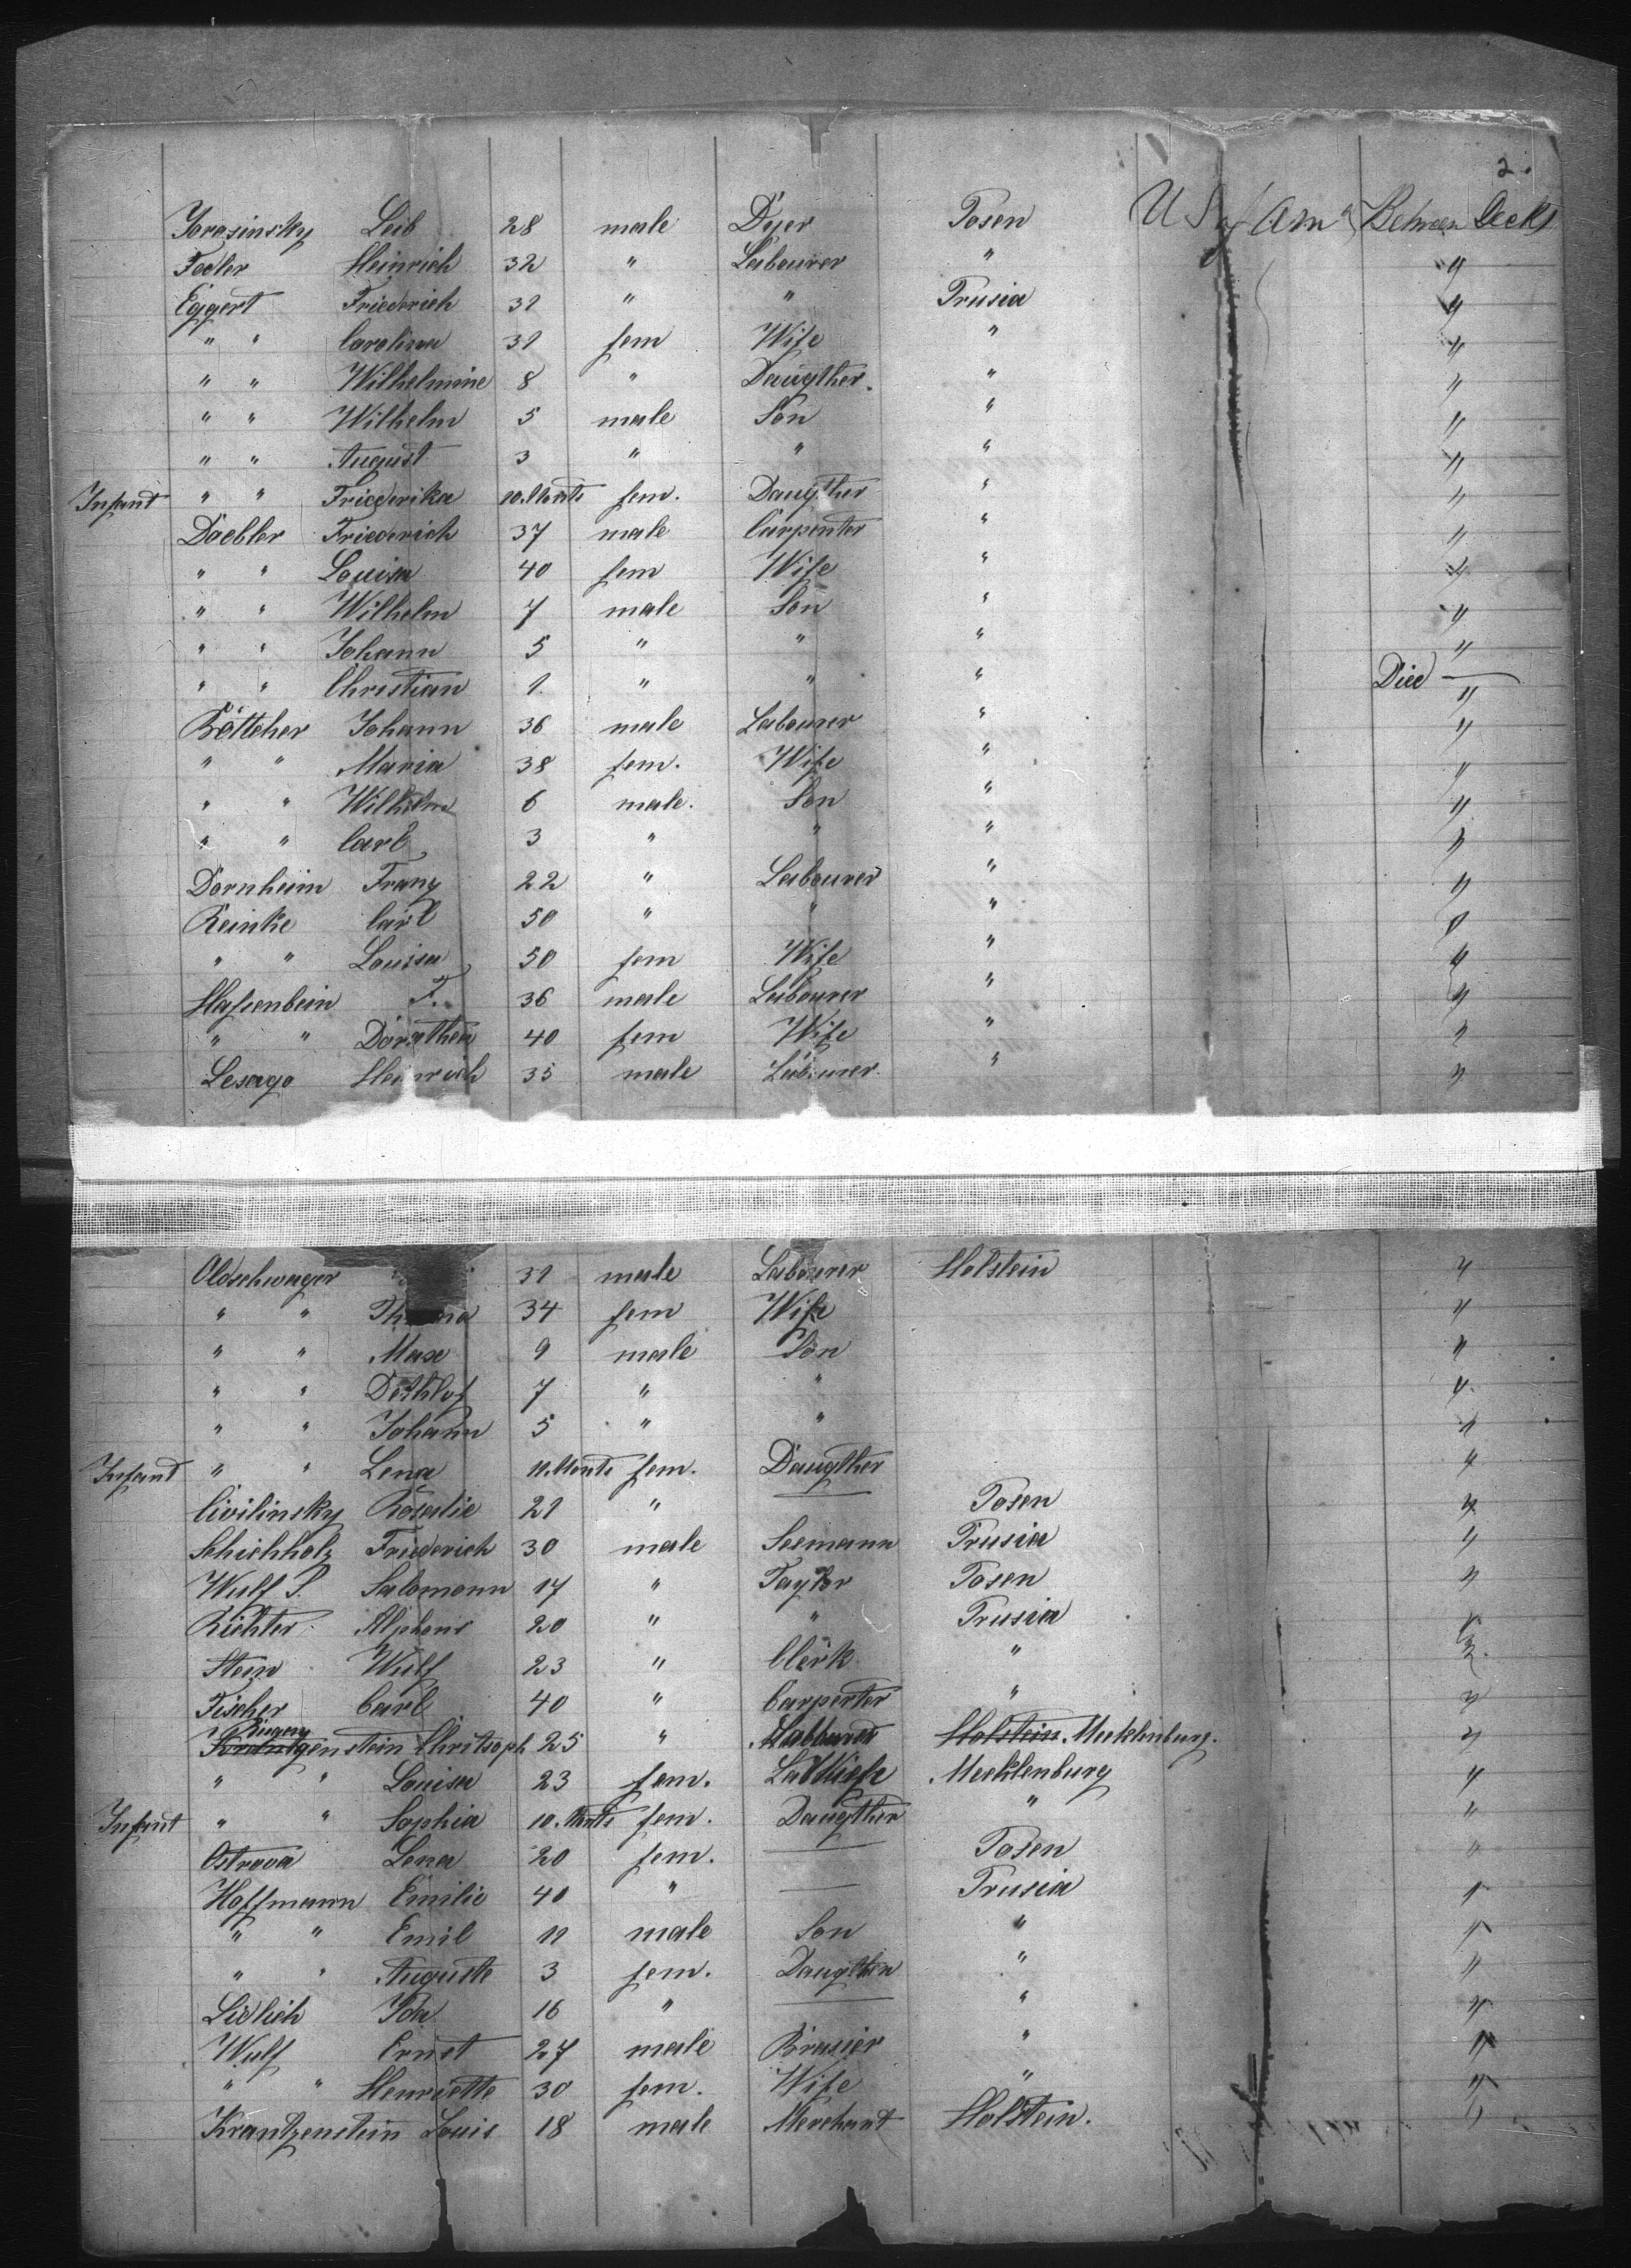 2.
Yorosinsky Leib 28 male Dyer Posen U S of Am Between Decks
Fedler Heinrich 32 " Labourer " "
Eggert Friederich 31 " " Prusia "
" " Carolina 31 fem Wife " "
" " Wilhelmine 8 " Daugther. " "
" " Wilhelm 5 male Son " "
" " August 3 " " " "
Infant " " Friederika 10. Monts fem. Daugther " "
Daebler Friederich 37 male Carpenter " "
" " Louisa 40 fem Wife " "
" " Wilhelm 7 male Son " "
" " Johann 5 " " " "
" " Christian 1. " " " Died "
Böttcher Johann 36 male Labourer " "
" " Maria 38 fem. Wife " "
" " Wilhelm 6 male. Son " "
" " Carl 3 " " " "
Dornheim Franz 22 " Labourer " "
Reinke Carl 50 " " " "
" " Louisa 50 fem Wife " "
Hassenbein F. 36 male Labourer " "
" " Dorathea 40 fem Wife " "
Lesago Heinrich 35 male Labourer " "
Oldschwager 31 male Labourer Holstein "
" " 34 fem Wife "
" " Max 9 male Son "
" " Dethlof 7 " " "
" " Johann 5 " " "
Infant " " Lena 11. Monts fem. Daugther "
Civilinsky Rosalie 21 " — Posen "
Schichholz Friederich 30 male Seemann Prusia "
Wulf S. Salomonn 17 " Taylor Posen "
Richter Alphons 20 " " Prusia "
Stein Wulf 23 " Clerk " "
Fischer Carl 40 " Carpenter " "
genstein Chritsoph 25 " Holstein Mecklenburg. "
" " Louisa 23 fem. Wife Mecklenburg "
Infant " " Sophia 10. Monts fem. Daugther " "
Ostrova Lena 20 fem. — Posen "
Hoffmann Emilie 40 " — Prusia "
" " Emil 11 male Son " "
" " Auguste 3 fem. Daugther " "
Lidlich Ida 16 " — " "
Wulf Ernst 27 male Brasier " "
" " Henriette 30 fem. Wife " "
Krantzenstein Louis 18 male Merchant Holstein. "